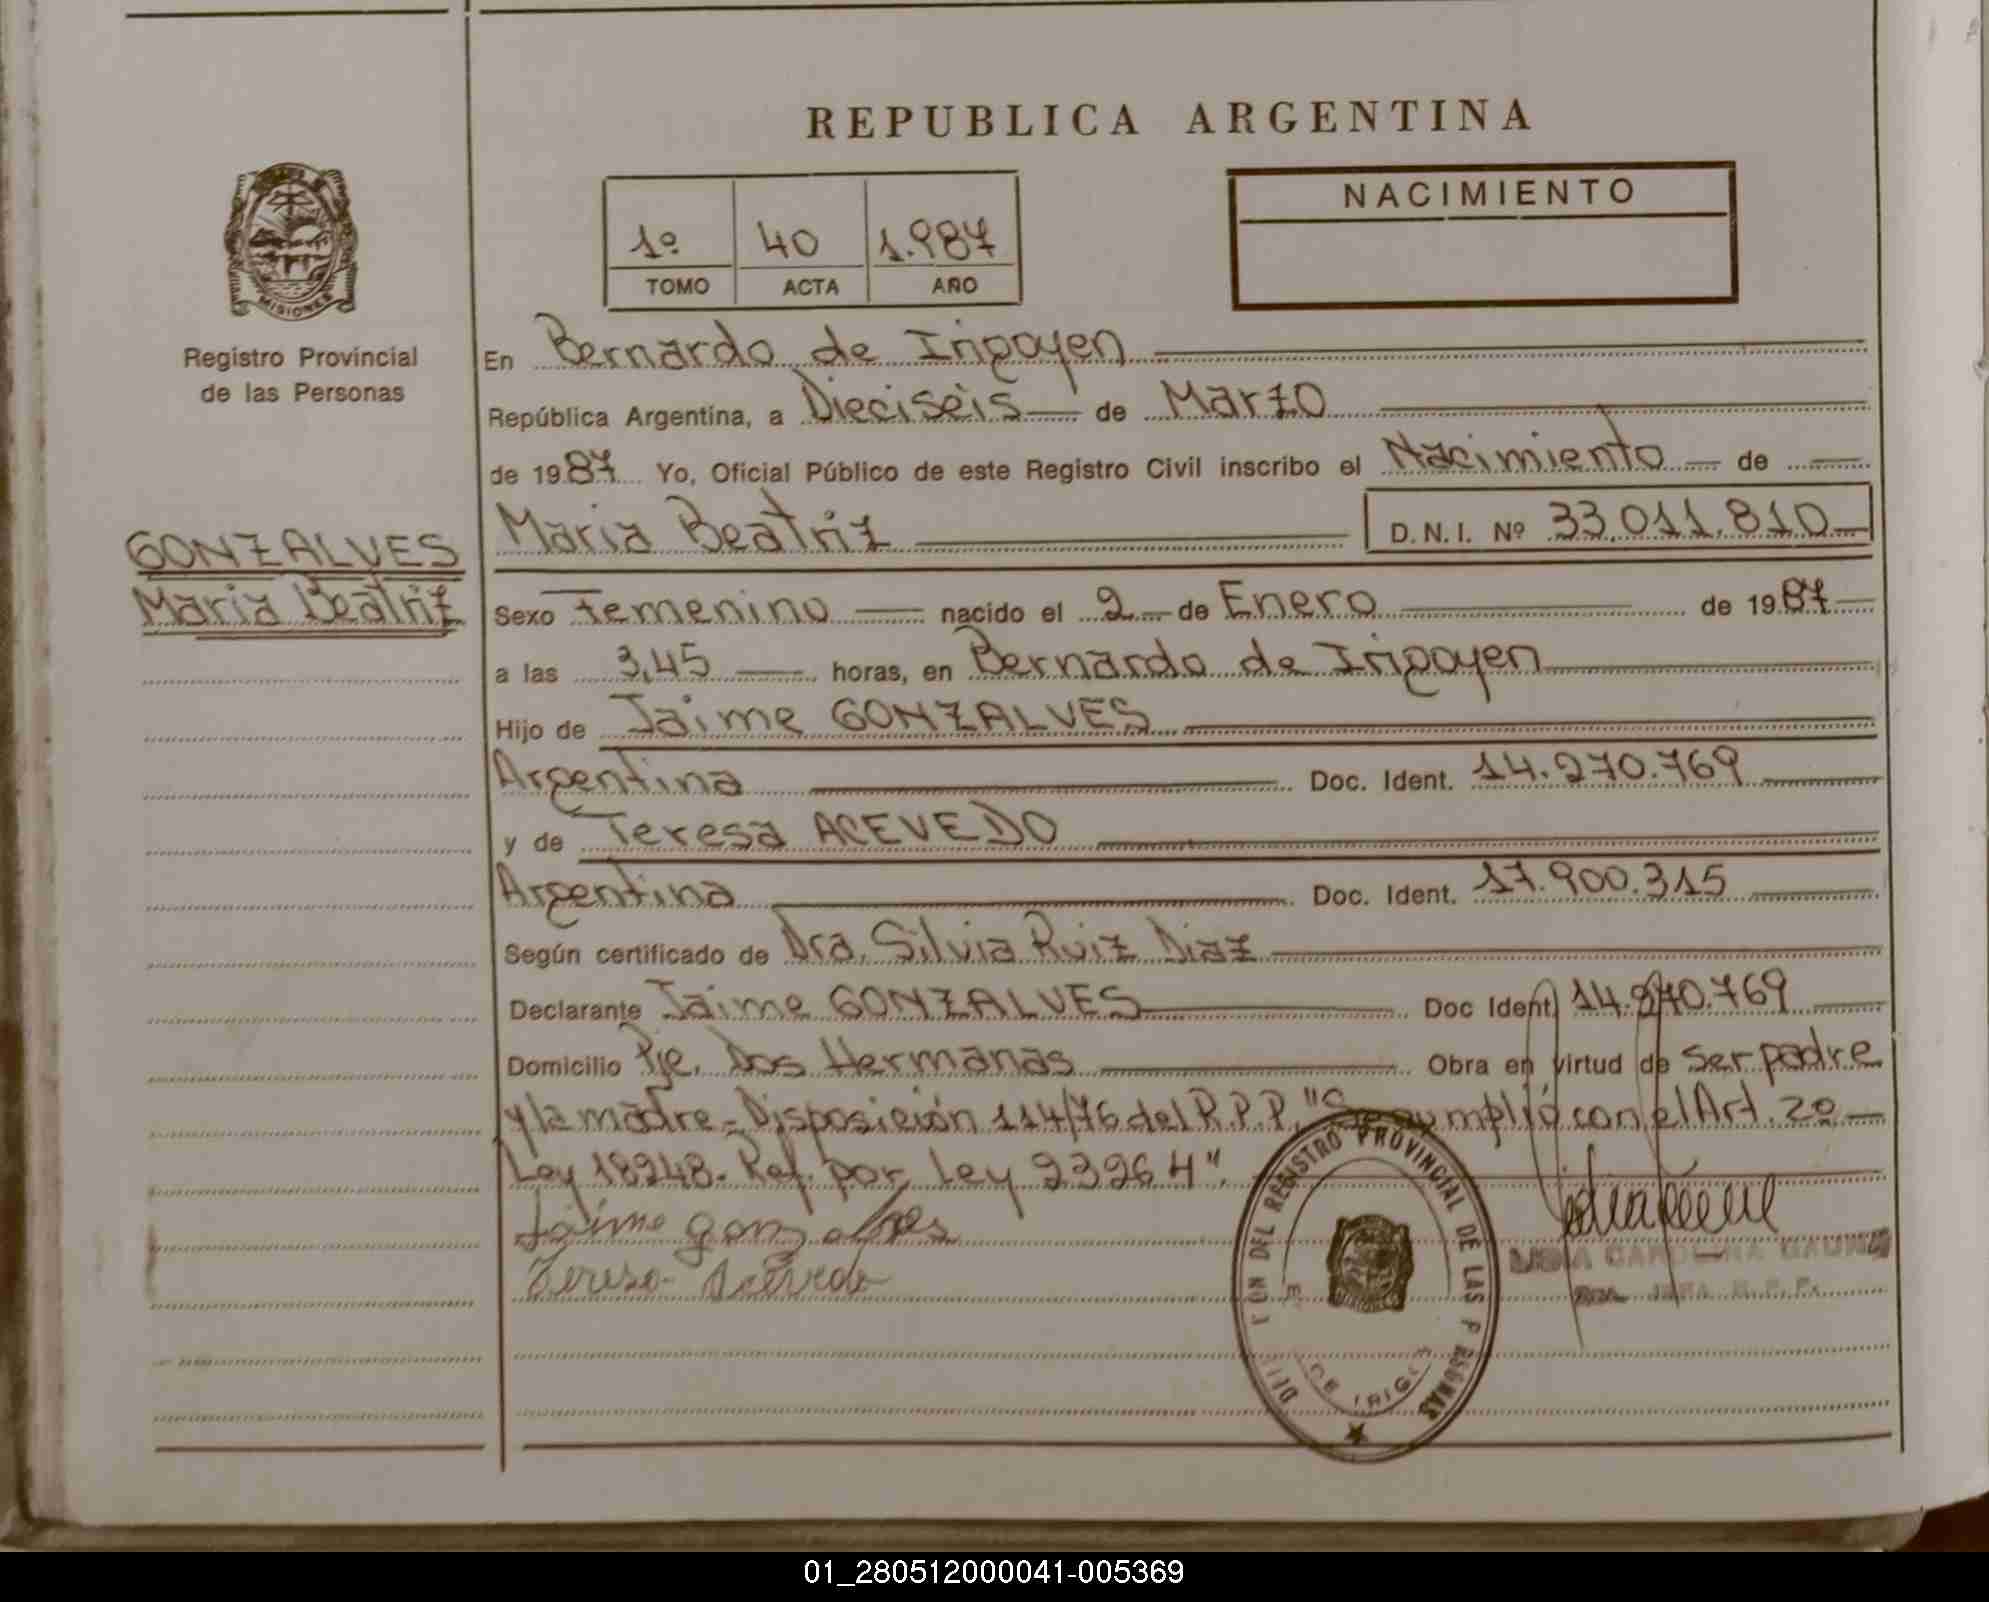 REPUBLICA ARGENTINA
NACIMIENTO
1º 40 1.987
TOMO ACTA AÑO
MISIONES
Registro Provincial
de las Personas
En Bernardo de Irigoyen
República Argentina, a Dieciseis de Marzo
de 1987 Yo, Oficial Público de este Registro Civil inscribo el Nacimiento de
GONZALVES
Maria Beatriz
Maria Beatriz D.N.I. Nº 33.011.810
Sexo Femenino nacido el 2 de Enero de 1987
a las 3,45 horas, en Bernardo de Irigoyen
Hijo de Jaime GONZALVES
Argentina Doc. Ident. 14.270.769
y de Teresa ACEVEDO
Argentina Doc. Ident. 17.900.315
Según certificado de Dra. Silvia Ruiz Diaz
Declarante Jaime GONZALVES Doc Ident. 14.270.769
Domicilio Pje. Dos Hermanas Obra en virtud de ser padre
y la madre - Disposición 114/76 del R.P.P. "Se cumplió con el Art. 2º
Ley 18248. Ref. por Ley 23264".
Jaime gonzalves
Teresa Acevedo
DEL REGISTRO PROVINCIAL DE LAS
CAROLINA
01_280512000041-005369